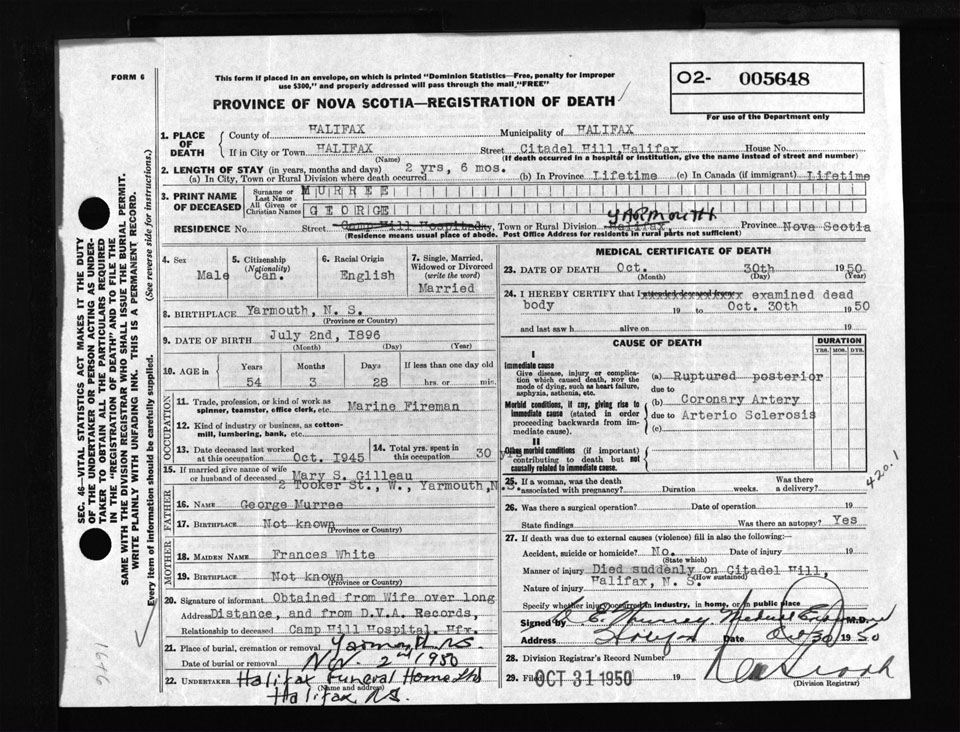 FORM 6
This form if placed in an envelope, on which is printed "Dominion Statistics—Free, penalty for improper
use $300," and properly addressed will pass through the mail "FREE"
O2- 005648
For use of the Department only
PROVINCE OF NOVA SCOTIA—REGISTRATION OF DEATH
1. PLACE OF DEATH
County of HALIFAX Municipality of HALIFAX
If in City or Town HALIFAX Street Citadel Hill, Halifax House No.
(Name) (If death occurred in a hospital or institution, give the name instead of street and number)
2. LENGTH OF STAY (in years, months and days)
(a) In City, Town or Rural Division where death occurred 2 yrs, 6 mos. (b) In Province Lifetime (c) In Canada (if immigrant) Lifetime
3. PRINT NAME OF DECEASED
Surname or Last Name MURREE
All Given or Christian Names GEORGE
YARMOUTH
RESIDENCE No. Street Camp Hill Hospital City, Town or Rural Division Halifax Province Nova Scotia
(Residence means usual place of abode. Post Office Address for residents in rural parts not sufficient)
4. Sex Male
5. Citizenship (Nationality) Can.
6. Racial Origin English
7. Single, Married, Widowed or Divorced (write the word) Married
8. BIRTHPLACE Yarmouth, N. S.
(Province or Country)
9. DATE OF BIRTH July 2nd, 1896
(Month) (Day) (Year)
10. AGE in Years Months Days If less than one day old
54 3 28 hrs. or min.
OCCUPATION
11. Trade, profession, or kind of work as spinner, teamster, office clerk, etc. Marine Fireman
12. Kind of industry or business, as cotton-mill, lumbering, bank, etc.
13. Date deceased last worked at this occupation Oct. 1945
14. Total yrs. spent in this occupation 30 yrs.
15. If married give name of wife or husband of deceased Mary S. Gilleau
2 Tooker St., W., Yarmouth, N.S.
FATHER
16. Name George Murree
17. Birthplace Not known
(Province or Country)
MOTHER
18. Maiden Name Frances White
19. Birthplace Not known
(Province or Country)
20. Signature of informant Obtained from Wife over long
Address Distance, and from D.V.A. Records,
Relationship to deceased Camp Hill Hospital. Hfx.
21. Place of burial, cremation or removal Yarmouth N.S.
Date of burial or removal Nov. 2nd 1950
22. Undertaker Halifax Funeral Home Ltd
(Name and address)
Halifax N.S.
MEDICAL CERTIFICATE OF DEATH
23. DATE OF DEATH Oct. 30th 1950
(Month) (Day) (Year)
24. I HEREBY CERTIFY that I examined dead
body 19 to Oct. 30th 1950
and last saw h alive on 19
CAUSE OF DEATH
DURATION
YRS. MOS. DYS.
I
Immediate cause
Give disease, injury or complication which caused death, NOT the mode of dying, such as heart failure, asphyxia, asthenia, etc.
(a) Ruptured posterior
due to
Morbid conditions, if any, giving rise to immediate cause (stated in order proceeding backwards from immediate cause).
(b) Coronary Artery
due to Arterio Sclerosis
(c)
II
Other morbid conditions (if important) contributing to death but not causally related to immediate cause.
420.1
25. If a woman, was the death associated with pregnancy? Duration weeks. Was there a delivery?
26. Was there a surgical operation? Date of operation 19
State findings Was there an autopsy? Yes
27. If death was due to external causes (violence) fill in also the following:—
Accident, suicide or homicide? No. Date of injury 19
(State which)
Manner of injury Died suddenly on Citadel Hill,
(How sustained)
Nature of injury Halifax, N. S.
Specify whether injury occurred in industry, in home, or in public place
Signed by Medical Examiner M.D.
Address Halifax Date Oct 30 1950
28. Division Registrar's Record Number
29. Filed OCT 31 1950 19
(Division Registrar)
SEC. 46—VITAL STATISTICS ACT MAKES IT THE DUTY
OF THE UNDERTAKER OR PERSON ACTING AS UNDER-
TAKER TO OBTAIN ALL THE PARTICULARS REQUIRED
IN THE "REGISTRATION OF DEATH" AND TO FILE THE
SAME WITH THE DIVISION REGISTRAR WHO SHALL ISSUE THE BURIAL PERMIT.
WRITE PLAINLY WITH UNFADING INK. THIS IS A PERMANENT RECORD.
Every item of information should be carefully supplied. (See reverse side for instructions.)